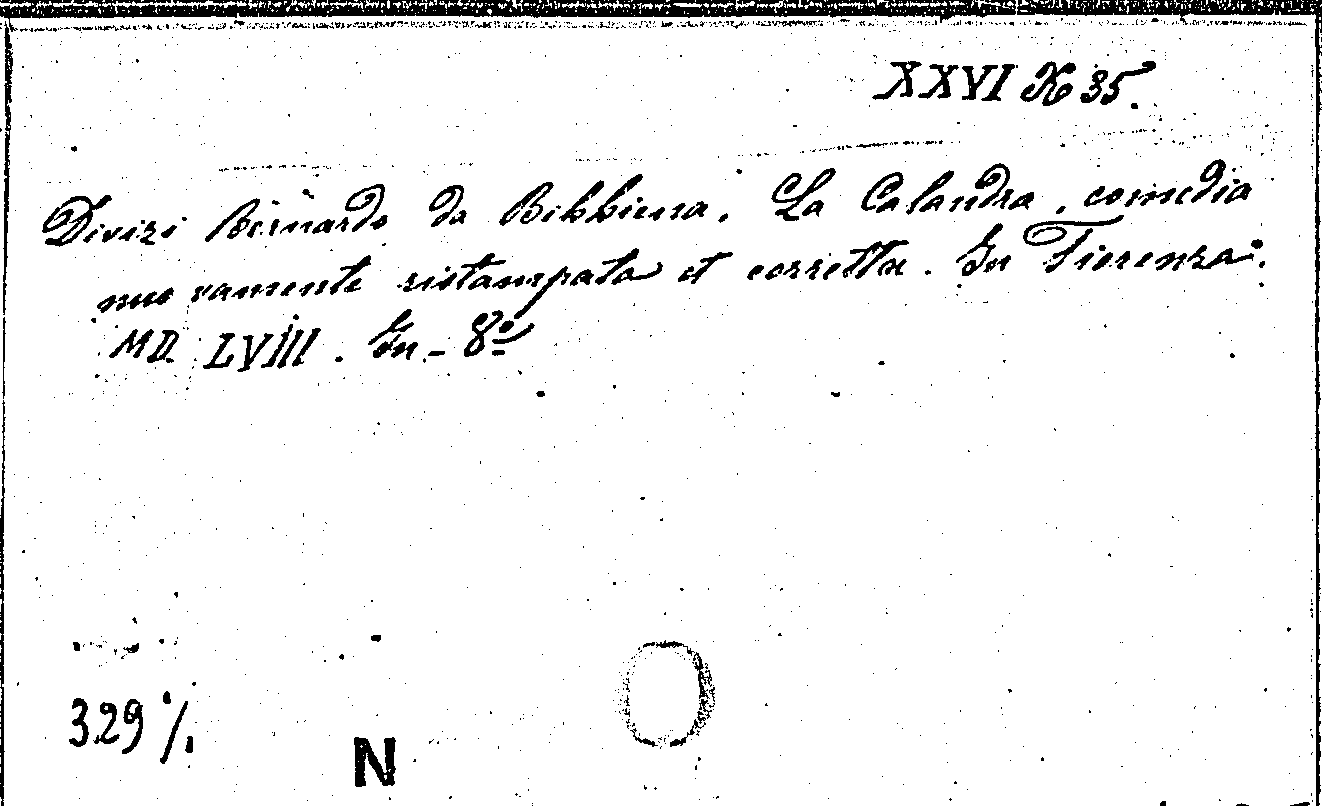 XXVI K 35.
Divizi Bernardo da Bibbiena. La Calandra, comedia
nuovamente ristampata et corretta. In Fiorenza.
MD LVIII. In-8º
329
N